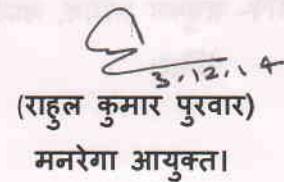 3.12.14
(राहुल कुमार पुरवार)
मनरेगा आयुक्त।